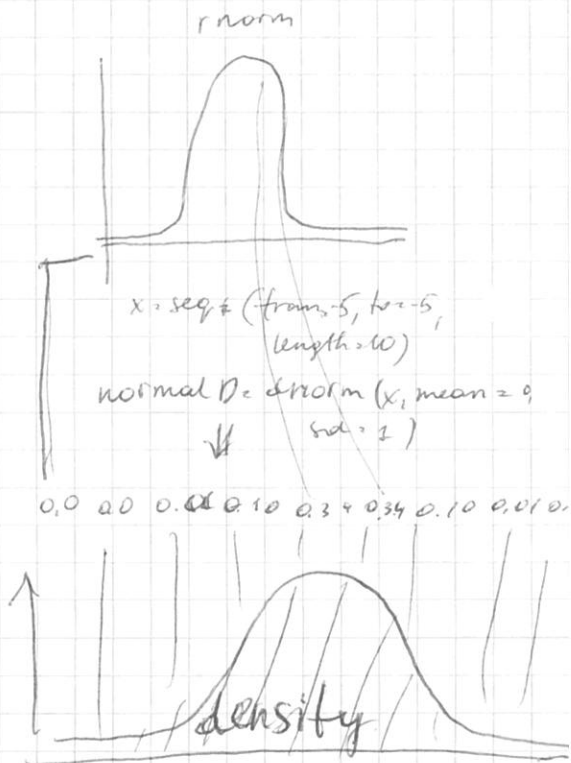 rnorm
x = seq (from=-5, to=-5,
length=10)
normal D = dnorm (x, mean = 0,
sd = 1)
0,0 0.0 0.01 0.10 0.34 0.34 0.10 0.01 0.
density